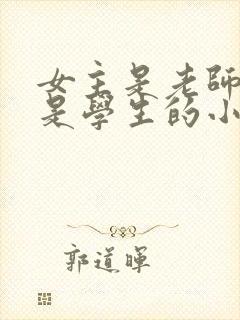 女主是老師
是學生的小
郭道暉